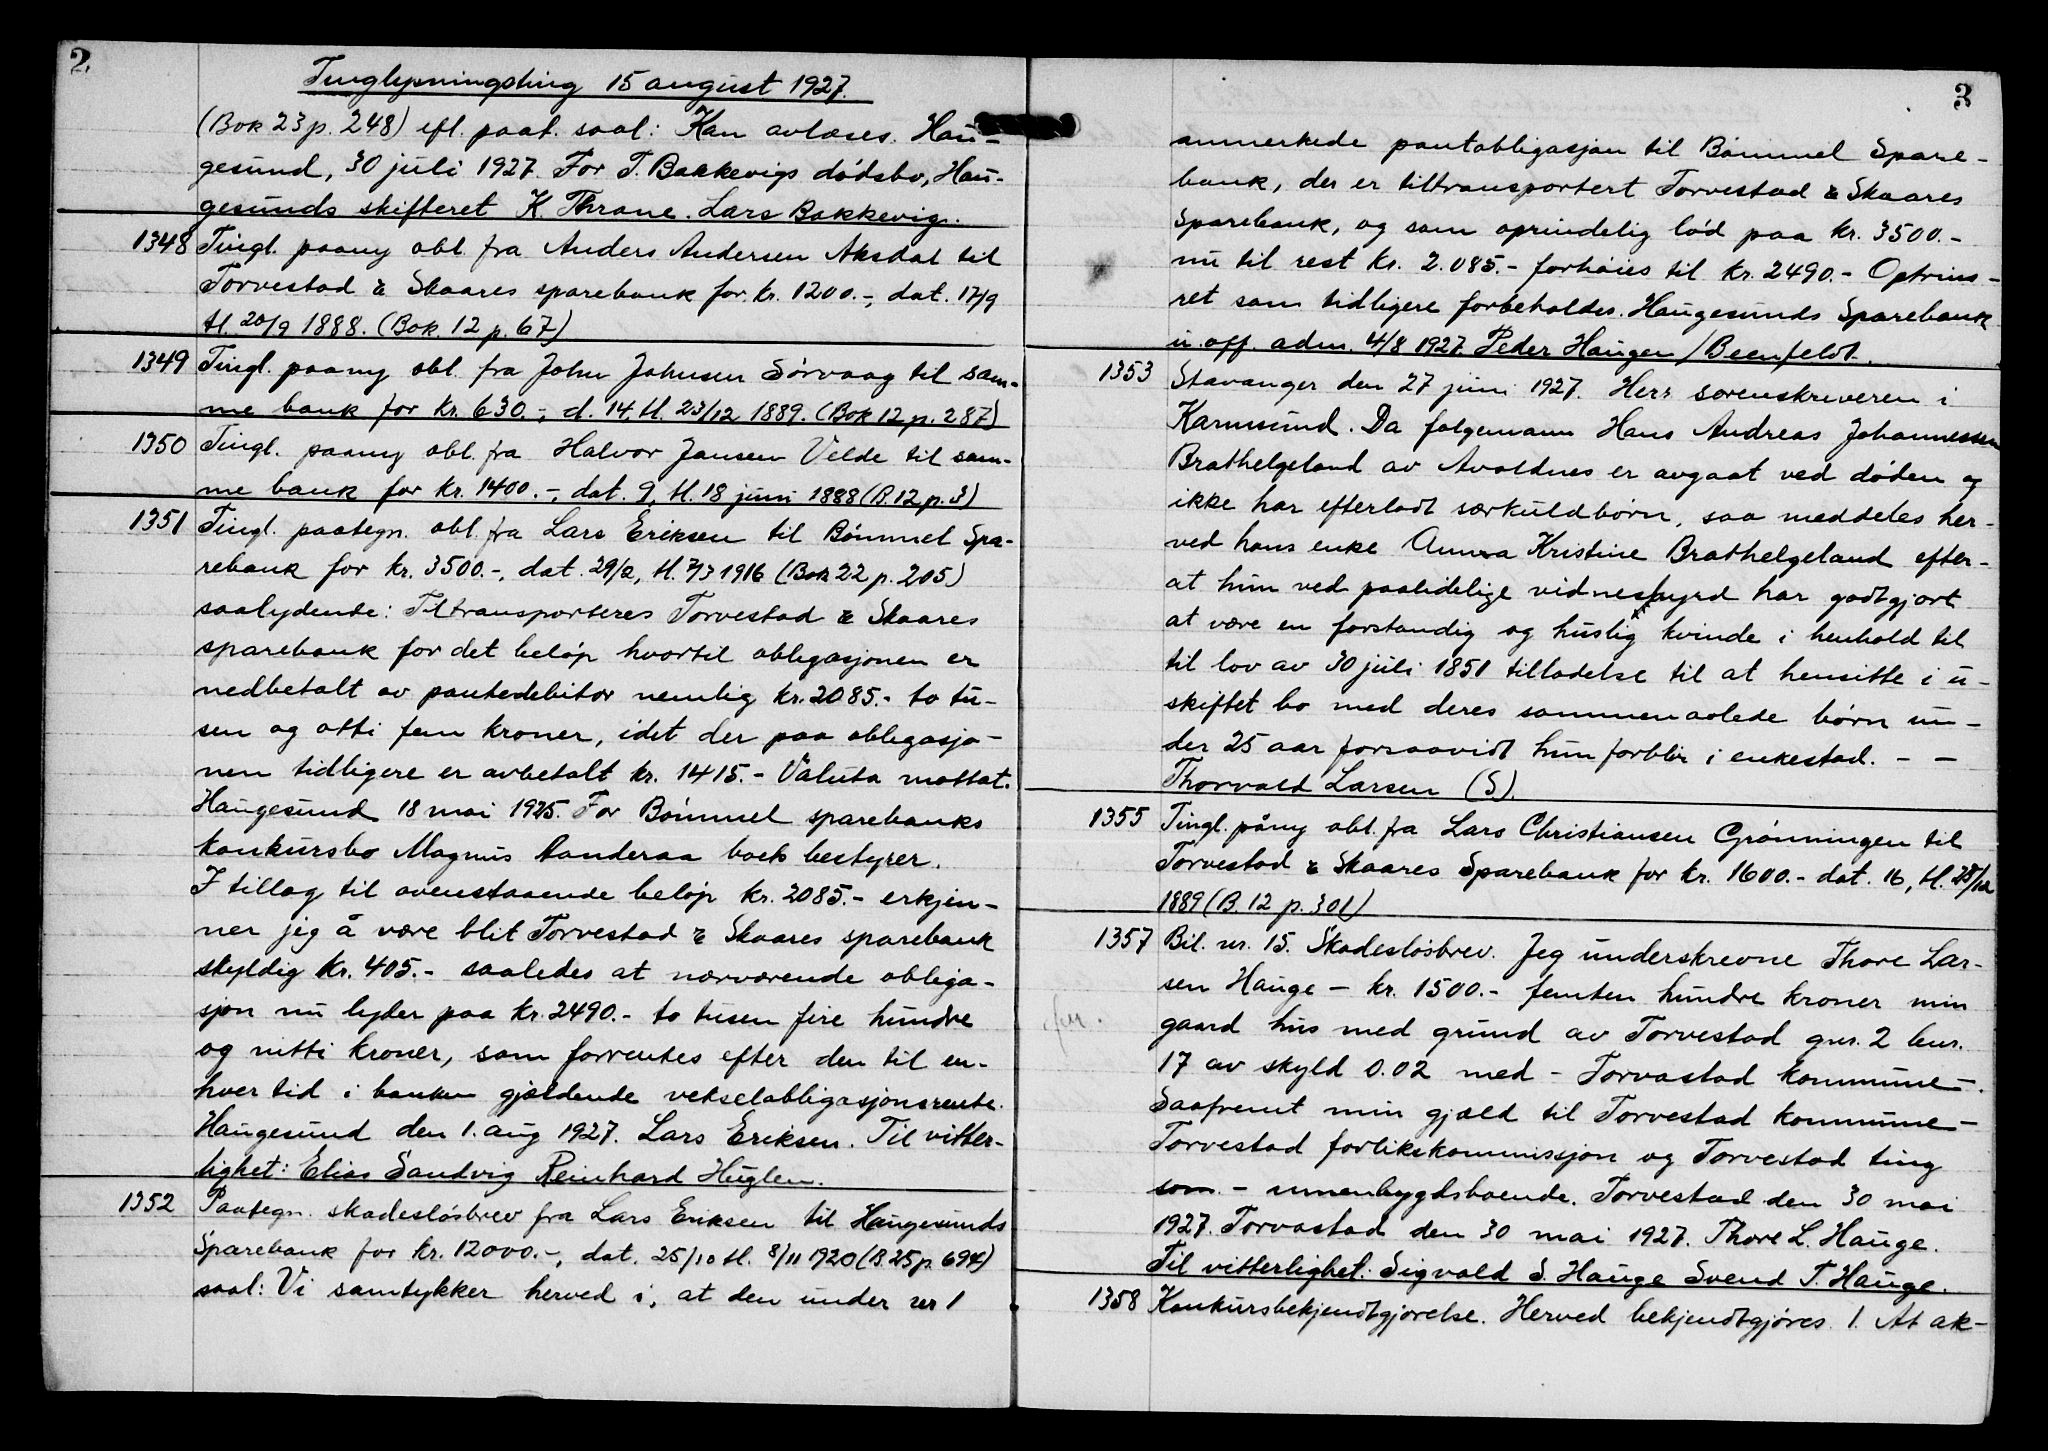 2
Tinglysningsting 15 august 1927.
(Bok 23 p. 248) efl. paat. saal: Kan avlæses. Hau-
gesund, 30 juli 1927. For T. Bakkevigs dødsbo, Hau-
gesunds skifteret K Thrane. Lars Bakkevig.
1348 Tingl. paany obl. fra Anders Andersen Aksdal til
Torvestad & Skaares sparebank for kr. 1200.-, dat. 17/9
tl. 20/9 1888. (Bok. 12 p. 67)
1349 Tingl. paany obl. fra John Johnsen Sørvaag til sam-
me bank for kr. 630.-, d. 14, tl. 23/12 1889. (Bok 12 p. 287)
1350 Tingl. paany obl. fra Halvor Jansen Velde til sam-
me bank for kr. 1400.-, dat. 9, tl. 18 juni 1888 (B. 12 p. 3)
1351 Tingl. paategn. obl. fra Lars Eriksen til Bømmel Spa-
rebank for kr. 3500.-, dat. 29/2, tl. 7/3 1916 (Bok 22 p. 205)
saalydende: Tiltransporteres Torvestad & Skaares
sparebank for det beløp hvortil obligasjonen er
nedbetalt av pantedebitor nemlig kr. 2085.- to tu-
sen og otti fem kroner, idet der paa obligasjo-
nen tidligere er avbetalt kr. 1415.- Valuta mottat.
Haugesund 18 mai 1925. For Bømmel sparebanks
konkursbo Magnus Aanderaa boets bestyrer.
I tillæg til ovenstaaende beløp kr. 2085.- erkjen-
ner jeg å være blit Torvestad & Skaares sparebank
skyldig kr. 405.- saaledes at nærværende obliga-
sjon nu lyder paa kr. 2490.- to tusen fire hundre
og nitti kroner, som forrentes efter den til en-
hver tid i banken gjældende vekselobligasjonsrente.
Haugesund den 1. aug 1927. Lars Eriksen. Til vitter-
lighet: Elias Sandvig Reinhard Huglen.
1352 Paategn. skadesløsbrev fra Lars Eriksen til Haugesunds
Sparebank for kr. 12000.-, dat. 25/10 tl. 8/11 1920 (B. 25 p. 694)
saal: Vi samtykker herved i, at den under nr 1
3
anmerkede pantobligasjon til Bømmel Spare-
bank, der er tiltransportert Torvestad & Skaares
Sparebank, og som oprindelig lød paa kr. 3500.-
nu til rest kr. 2.085.- forhøies til kr. 2490.- Optrins-
ret som tidligere forbeholdes. Haugesunds Sparebank
u. off. adm. 4/8 1927. Peder Haugen / Beenfeldt.
1353 Stavanger den 27 juni 1927. Herr sorenskriveren i
Karmsund. Da følgemann Hans Andreas Johannessen
Brathelgeland av Avaldnes er avgaat ved døden og
ikke har efterladt særkuldbørn, saa meddeles her-
ved hans enke Anna Kristine Brathelgeland efter-
at hun ved paalidelige vidnesbyrd har godtgjort
at være en forstandig og huslig kvinde i henhold til
til lov av 30 juli 1851 tilladelse til at hensitte i u-
skiftet bo med deres sammenavlede børn un-
der 25 aar forsaavidt hun forblir i enkestad. - -
Thorvald Larsen (S).
1355 Tingl. påny obl. fra Lars Christiansen Grønningen til
Torvestad & Skaares Sparebank for kr. 1600.- dat. 16, tl. 28/12
1889 (B. 12 p. 301)
1357 Bil. nr. 15. Skadesløsbrev. Jeg underskrevne Thore Lar-
sen Hauge - kr. 1500.- femten hundre kroner min
gaard hus med grund av Torvestad gnr. 2 bnr.
17 av skyld 0.02 med - Torvastad kommune-.
Saafremt min gjæld til Torvestad kommune-
Torvestad forlikskommissjon og Torvestad ting
som - innenbygdsboende. Torvestad den 30 mai
1927. Torvastad den 30 mai 1927. Thore L. Hauge.
Til vitterlighet: Sigvald S. Hauge Svend T. Hauge.
1358 Konkursbekjendtgjørelse. Herved bekjendtgjøres. 1. At ak-